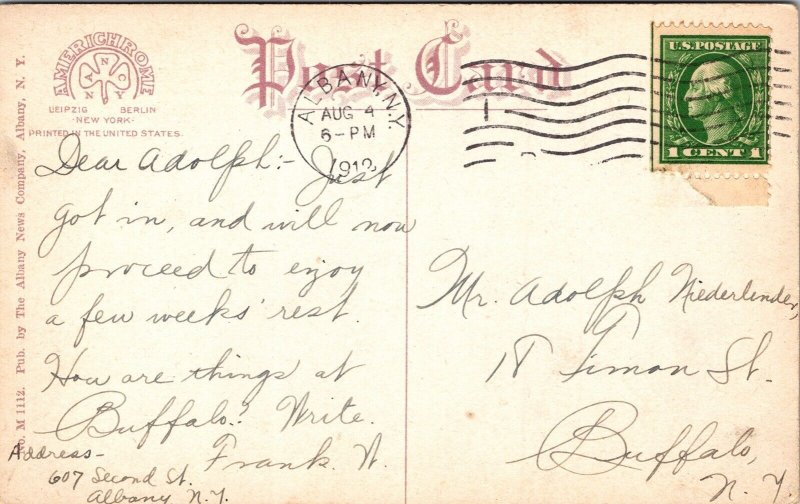 AMERICHROME
ANCO NY
LEIPZIG BERLIN
NEW YORK
PRINTED IN THE UNITED STATES.
Post Card
ALBANY, N.Y.
AUG 4
6-PM
1912
U.S. POSTAGE
1 CENT 1
No. M 1112. Pub. by The Albany News Company, Albany, N. Y.
Dear Adolph:- Just
got in, and will now
proceed to enjoy
a few weeks' rest.
How are things at
Buffalo? Write.
Frank. N.
Address-
607 Second St.
Albany N.Y.
Mr. Adolph Niederlender,
18 Timon St.
Buffalo,
N. Y.